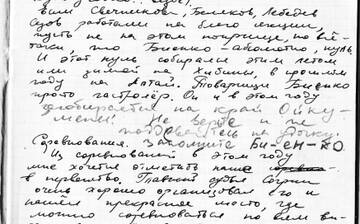 Вам Свечникова, Беликов, Лебедев
работали на благо секции,
пусть не на этом поприще, но всё-
таки, что Биенко - абсолютно нуль.
И этот нуль собирался этим летом
или зимой на Хибины, в прошлом
году на Алтай. Товарищ Биенко
просто гастролёр. Он и в этом году
собирается на край Ойку-
мены! Не верьте и не
поддавайтесь на
Соревнования. Запомните Би-ЕН-КО
Из соревнований в этом году
мне хочется отметить
первенство. Главный судья
очень хорошо организовал его и
нашёл прекрасное место, где
можно соревноваться по всем ви-